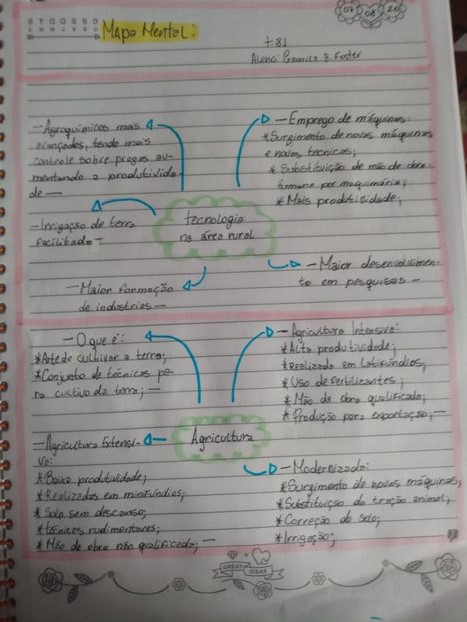 S T Q Q S S D
L M M J V S D
Mapa Mental:
07 08 20
t:81
Aluna:
- Agroquímicos mais
avançados, tendo mais
controle sobre pragas au-
mentando a produtivida-
de -
- Irrigação de terra
facilitada -
- Maior formação
de industrias -
tecnologia
na área rural
- Emprego de máquinas:
*Surgimento de novas máquinas
e novas técnicas;
* Substituição de mão de obra
humana por maquinários;
* Mais produtividade;
- Maior desenvolvimen-
to em pesquisas -
- O que é:
*Arte de cultivar a terra;
*Conjunto de técnicas pa-
ra cultivo da terra; -
- Agricultura Extensi-
va:
* Baixa produtividade;
*Realizadas em minifúndios;
* Solo sem descanso;
*técnicas rudimentares;
* Mão de obra não qualificada; -
Agricultura
- Agricultura Intensiva:
*Alta produtividade;
*Realizada em latifúndios;
* Uso de fertilizantes;
* Mão de obra qualificada;
* Produção para exportação; -
- Modernizada:
*Surgimento de novas máquinas;
*Substituição da tração animal;
*Correção do solo;
*Irrigação;
GREAT IDEAS